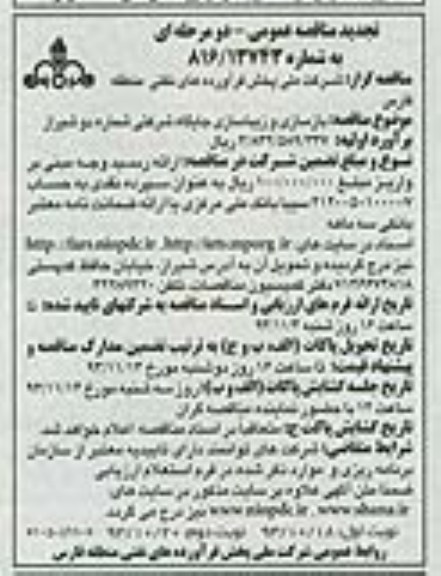 تجدید مناقصه عمومی - دو مرحله ای
به شماره ۸۱۶/۱۳۷۴۳
مناقصه گزار: شرکت ملی پخش فرآورده های نفتی منطقه
فارس
موضوع مناقصه: بازسازی و زیباسازی جایگاه شرکتی شماره دو شیراز
برآورد اولیه: ریال
نوع و مبلغ تضمین شرکت در مناقصه: ارائه رسید وجه مبنی بر
واریز مبلغ ریال به عنوان سپرده نقدی به حساب
سیبا بانک ملی مرکزی یا ارائه ضمانت نامه معتبر
بانکی سه ماهه
اسناد در سایت های http://iets.mporg.ir , http://fars.niopdc.ir
نیز درج گردیده و تحویل آن به آدرس شیراز، خیابان حافظ قدیمی
دفتر کمیسیون مناقصات، تلفن
تاریخ ارائه فرم های ارزیابی و اسناد مناقصه به شرکتهای تایید شده: تا
ساعت ۱۶ روز شنبه
تاریخ تحویل پاکات (الف، ب و ج) به ترتیب تضمین مدارک مناقصه و
پیشنهاد قیمت: تا ساعت ۱۶ روز دوشنبه مورخ ۹۳/۱۱/۱۳
تاریخ جلسه گشایش پاکات (الف و ب): روز سه شنبه مورخ ۹۳/۱۱/۱۴
ساعت ۱۳ با حضور نماینده مناقصه گران
تاریخ گشایش پاکت ج: متعاقباً در اسناد مناقصه اعلام خواهد شد.
شرایط متقاضی: شرکت های توانمند دارای تاییدیه معتبر از سازمان
برنامه ریزی و موارد ذکر شده در فرم استعلام ارزیابی
ضمنا متن آگهی علاوه بر سایت مذکور در سایت های
www.niopdc.ir , www.shana.ir نیز درج می گردد.
نوبت اول: ۹۳/۱۰/۱۸ نوبت دوم: ۹۳/۱۰/۲۰
روابط عمومی شرکت ملی پخش فرآورده های نفتی منطقه فارس